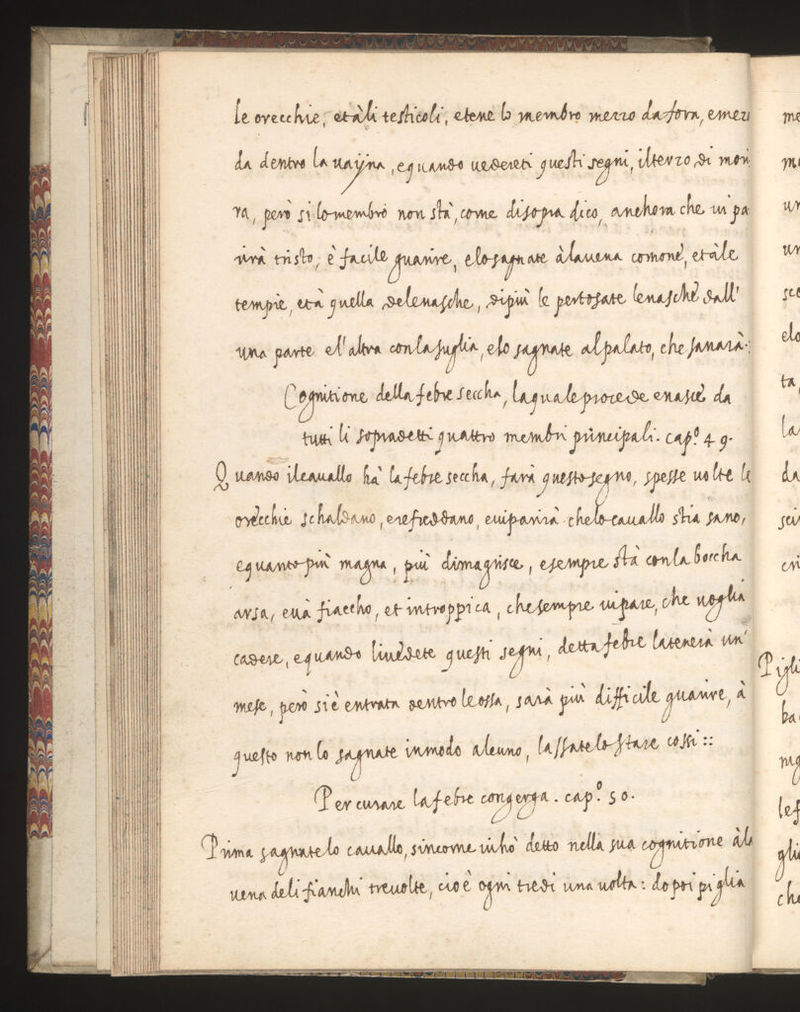 le orecchie, et àli testicoli, etene lo membro mezzo dafora, emez
da dentro la uayna, equando uedereti questi segni, ilterzo, di mori
ra, però si lo membro non stà, come disopra dico, anchora che ui pa
rirà tristo, è facile guarire, elosagnate àlauena comone, et àle
tempie, età quella delenasche, dipiù le pertosate lenasche dall'
una parte el'altra con lasuglia, elo sagnate alpalato, che sanarà:
Cognitione della febre seccha, laquale procede enasce da
tutti li sopradetti quattro membri principali. cap.º 49.
Quando ilcauallo hà la febre seccha, farà questo segno, spesse uolte le
orecchie schaldano, erefreddano, euiparirà chelo cauallo stia sano,
equanto più magna, più dimagrisce, esempre stà con la boccha
arsa, euà fiaccho, et introppica, chesempre uipare, che uoglia
cadere, equando liuedete questi segni, detta febre latenerà un'
mese, però si è entrata dentro le ossa, sarà più difficile guarire, à
questo non lo sagnate inmodo alcuno, lassatelo stare cossi::
Per curare lafebre congerga. cap.º 50.
Prima sagnatelo cauallo, sincome iuhò detto nella sua cognitione àla
uena deli fianchi treuolte, cioè ogni tredi una uolta: dopoi piglia
me
ur
ur
sce
elo
ta,
la
da
sci
cri
Pigli
ba
mg
lef
gli
che